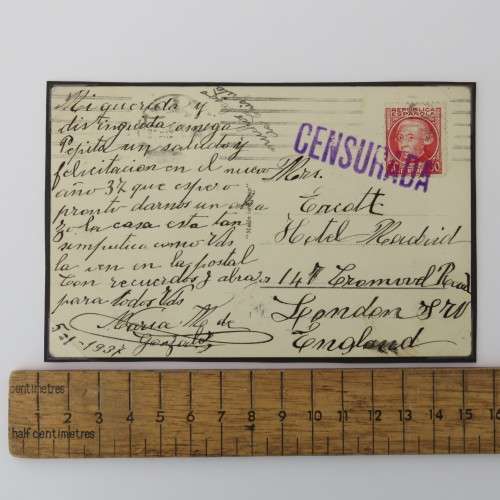 Mi querida y
distinguida amiga
Pepita un saludo y
felicitacion en el nuevo
año 37 que espero
pronto darnos un abra
zo la casa esta tan
simpatica como Vds
la ven en la postal
Con recuerdos y abrazos
para todos Vds
Maria M. de
Gonzalez
5-1-1937
CENSURADA
REPUBLICA
ESPAÑOLA
Mrs.
Hotel Madrid
147 Cromwel Road
London SW
England
centimetres
1 2 3 4 5 6 7 8 9 10 11 12 13 14 15 16
half centimetres